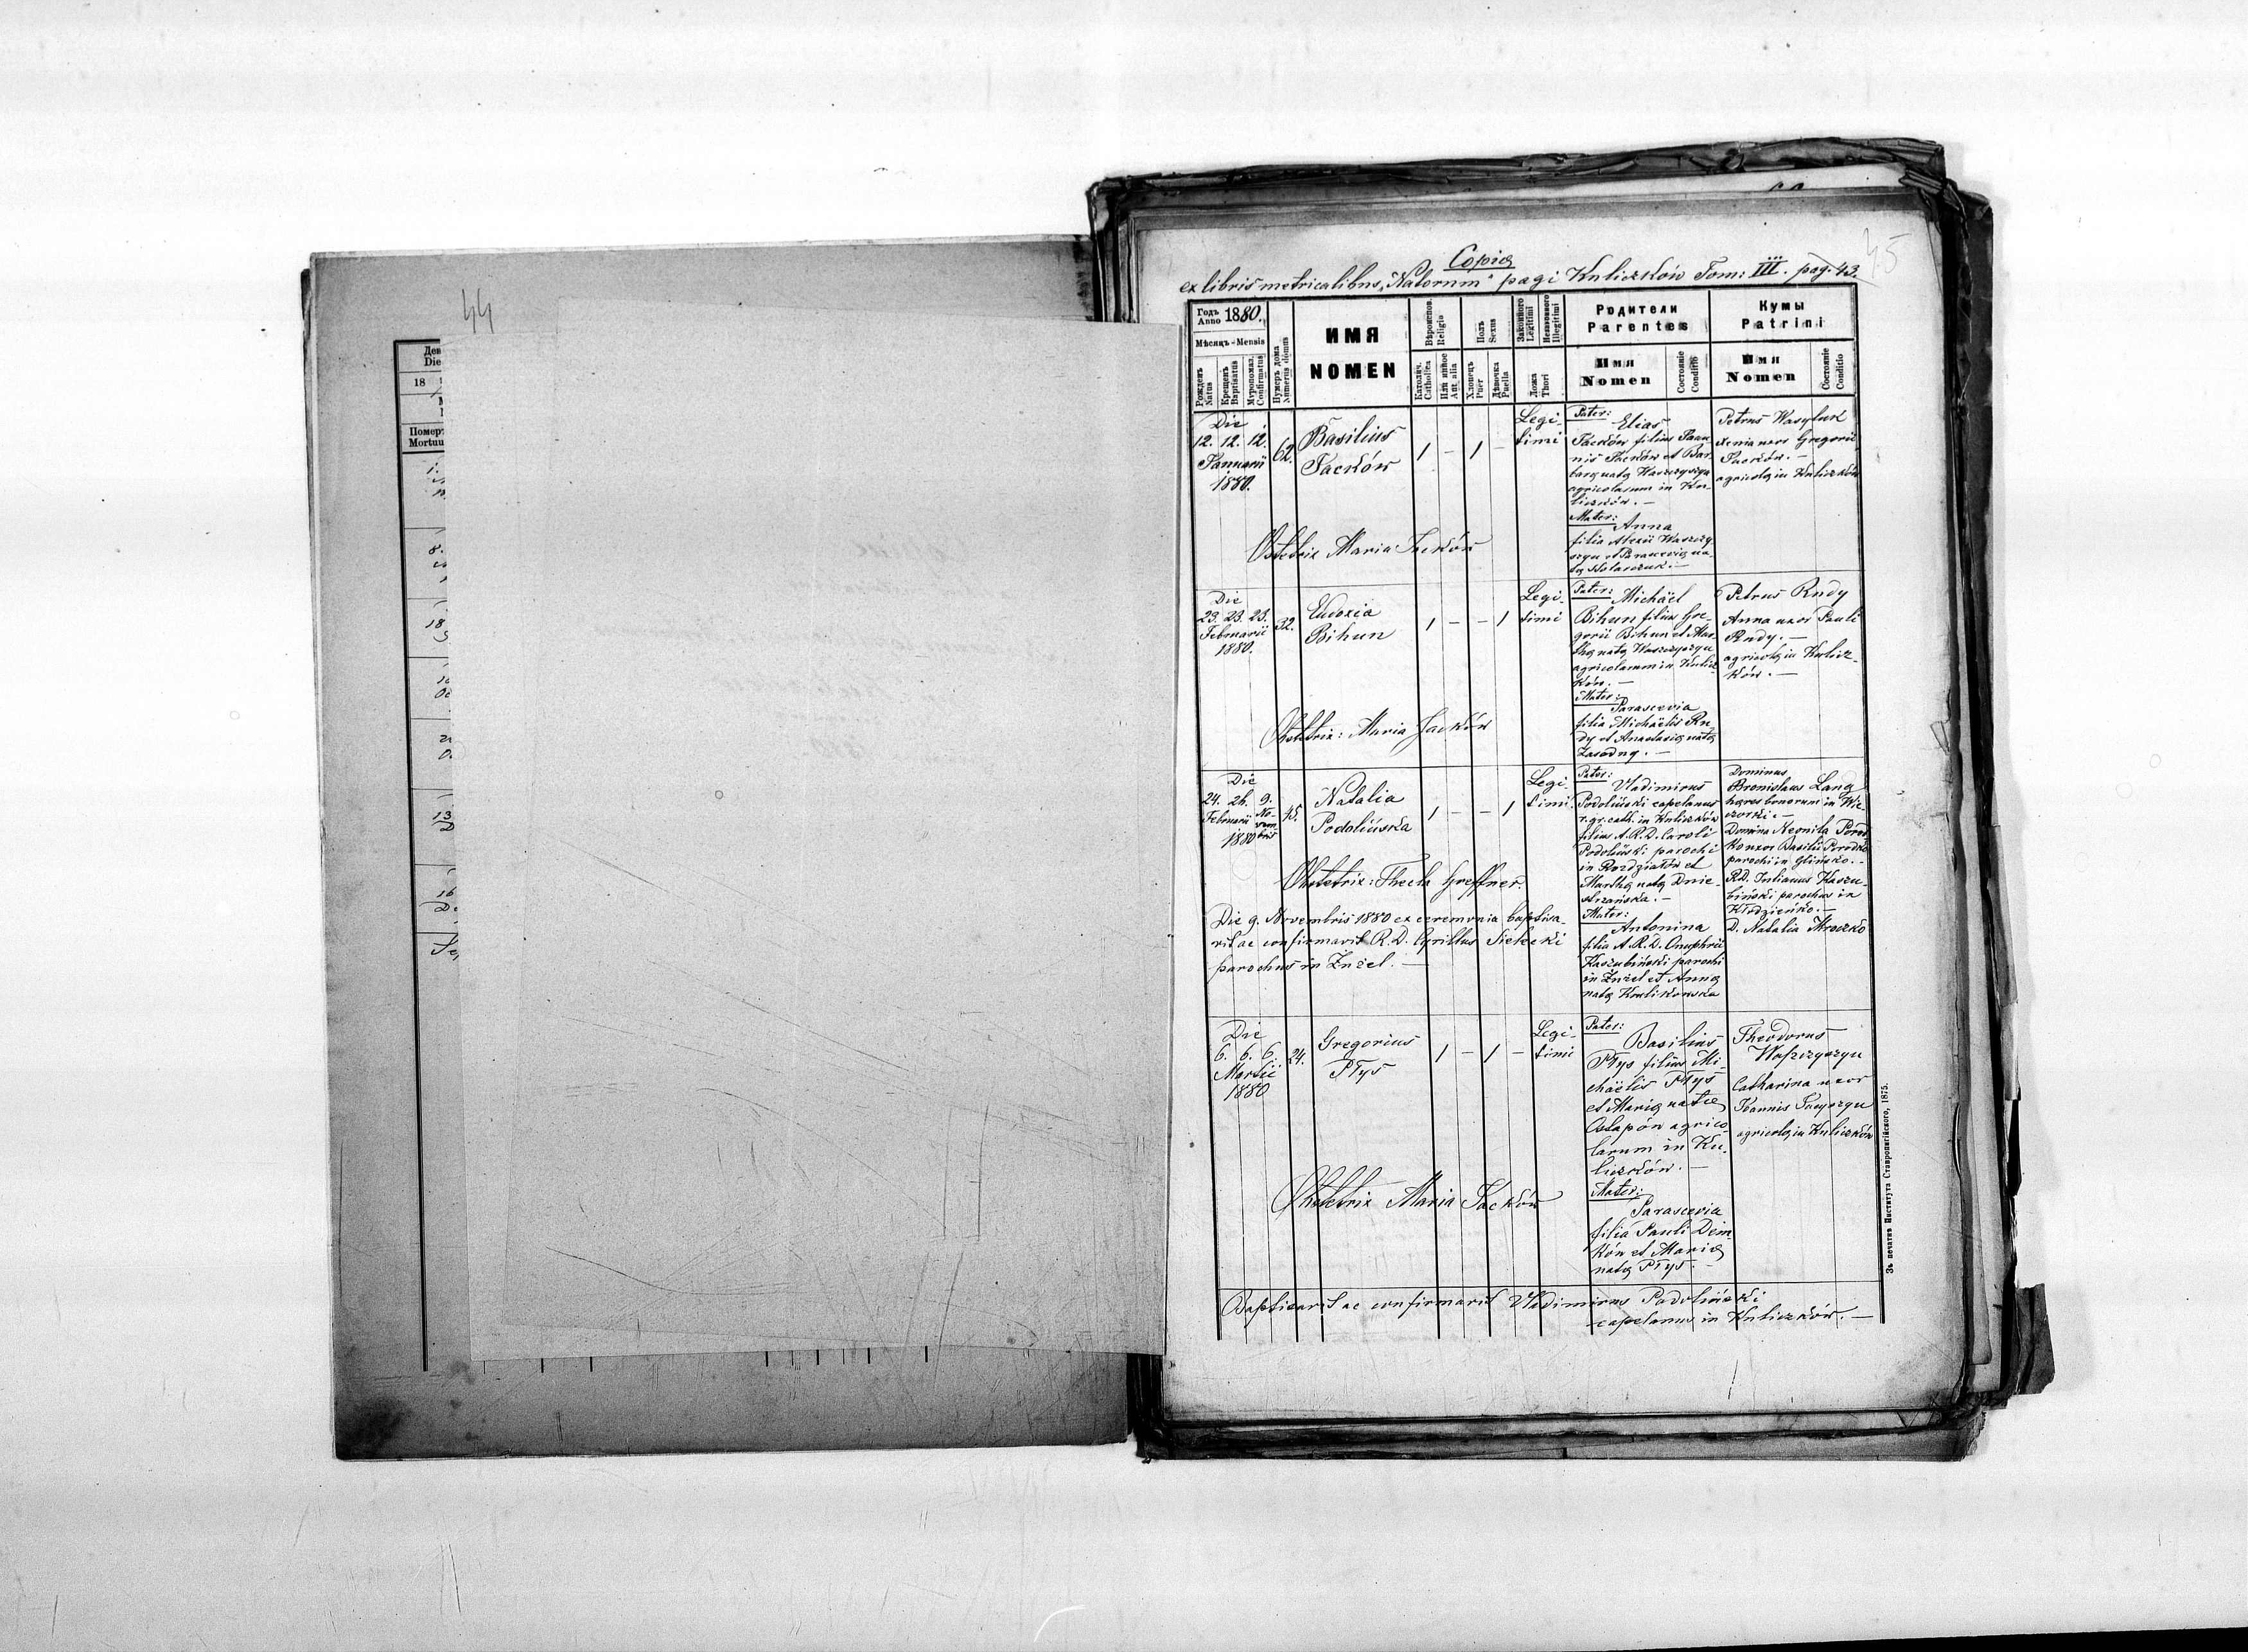 44
Ден
Die
18
Помер
Mortuu
8.
18.
13
16
45
Copia
ex libris metricalibus "Natorum" pagi Kuliczków Tom: III. pag. 43.
Годъ
Anno 1880.
Мѣсяць - Mensis
Рожденъ
Natus
Крещенъ
Baptisatus
Мѵропомаз.
Confirmatus
Нумеръ дома
Numerus domus
ИМЯ
NOMEN
Вѣроиспов.
Religio
Католич.
Catholica
Или иное
Aut alia
Полъ
Sexus
Хлопецъ
Puer
Дѣвочка
Puella
Законного
Legitimi
Незаконного
Illegitimi
Ложа
Thori
Родители
Parentes
Имя
Nomen
Состояніе
Conditio
Кумы
Patrini
Имя
Nomen
Состояніе
Conditio
Die
12. 12. 12.
Januarii
1880.
62.
Basilius
Jacków
1 - 1 -
Legi-
timi
Pater:
Elias
Jacków filius Joan-
nis Jacków et Bar-
bara nata Waszczyszyn
agricolarum in Ku-
liczków. —
Mater:
Anna
filia Alexii Waszczy-
szyn et Parascevia na-
ta
Petrus Wasyluk
Xenia uxor Gregorii
Jacków. —
agricola in Kuliczków
Obstetrix Maria Jacków
Die
23. 23. 23.
Februarii
1880.
32.
Eudoxia
Bihun
1 - - 1
Legi-
timi
Pater: Michaël
Bihun filius Gre-
gorii Bihun et Mar-
tha nata Waszczyszyn
agricolarum in Kulicz-
ków. —
Mater:
Parascevia
filia Michaëlis Ru-
dy et Anastasia nata
Zasadny. —
Petrus Rudy
Anna uxor Pauli
Rudy. —
agricola in Kulicz-
ków. —
Obstetrix: Maria Jacków
Die
24. 26. 9.
Februarii No-
vem-
1880 bris
45.
Natalia
Podolińska
1 - - 1
Legi-
timi
Pater:
Vladimirus
Podoliński capelanus
r. gr. cath. in Kuliczków
filius A. R. D. Caroli
Podoliński parochi
in Rozdziałów et
Martha nata Dnie-
strzańska. —
Mater:
Antonina
filia A. R. D. Onuphrii
Kaszubiński parochi
in Żużel et Anna
nata Kulikowska
Dominus
Bronislaus Lang
hæres bonorum in Wie-
czorki. —
Domina Neonila Porod-
ko uxor Basilii Porodko
parochi in Glińsko. —
R.D. Julianus Kaszu-
biński parochus in
Kłodzieńko. —
D. Natalia Mroczko
Obstetrix: Thecla Greffner.
Die 9. Novembris 1880 ex ceremonia baptisa-
vit ac confirmavit R. D. Cyrillus Sielecki
parochus in Żużel. —
Die
6. 6. 6.
Martii
1880
24.
Gregorius
Płys
1 - 1 -
Legi-
timi
Pater:
Basilius
Płys filius Mi-
chaëlis Płys
et Maria natæ
Ostapów agrico-
larum in Ku-
liczków. —
Mater:
Parascevia
filia Pauli Dem-
ków et Maria
nata Płys. —
Theodorus
Waszczyszyn
Catharina uxor
Joannis
agricola in Kuliczków
Obstetrix Maria Jacków
Baptisavit ac confirmavit Vladimirus Podoliński
capelanus in Kuliczków. —
Зъ печатнѣ Института Ставропигійского, 1875.